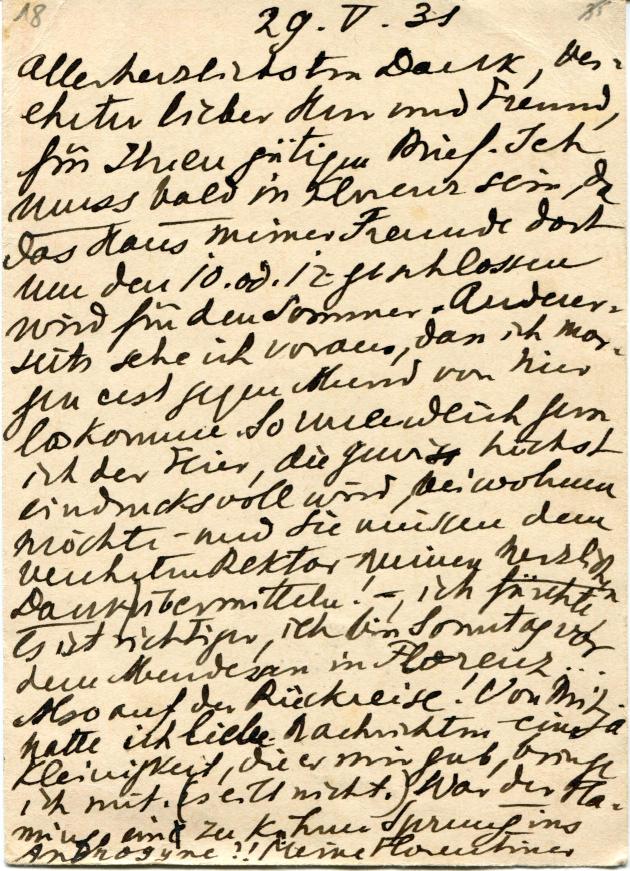 18
29. V. 31
Allerherzlichsten Dank, ver-
ehrter lieber Herr und Freund,
für Ihren gütigen Brief. Ich
muss bald in Florenz sein, da
das Haus meiner Freunde dort
um den 10. od. 12. geschlossen
wird für den Sommer. Anderer-
seits sehe ich voraus, dass ich mor-
gen erst gegen Abend von hier
loskomme. So unendlich gern
ich der Feier, die gewiss höchst
eindrucksvoll wird, beiwohnen
möchte - und Sie müssen dem
verehrten Rektor meinen herzlichen
Dank übermitteln! -, ich fürchte
es ist richtiger, ich bin Sonntag vor
dem Abendessen in Florenz...
Also auf der Rückreise! Von Mitja
hatte ich liebe Nachrichten eine
Kleinigkeit, die er mir gab, bringe
ich mit. (eilt nicht.) War der
ein zu kühner Sprung ins
Androgyne?! Meine Florentiner